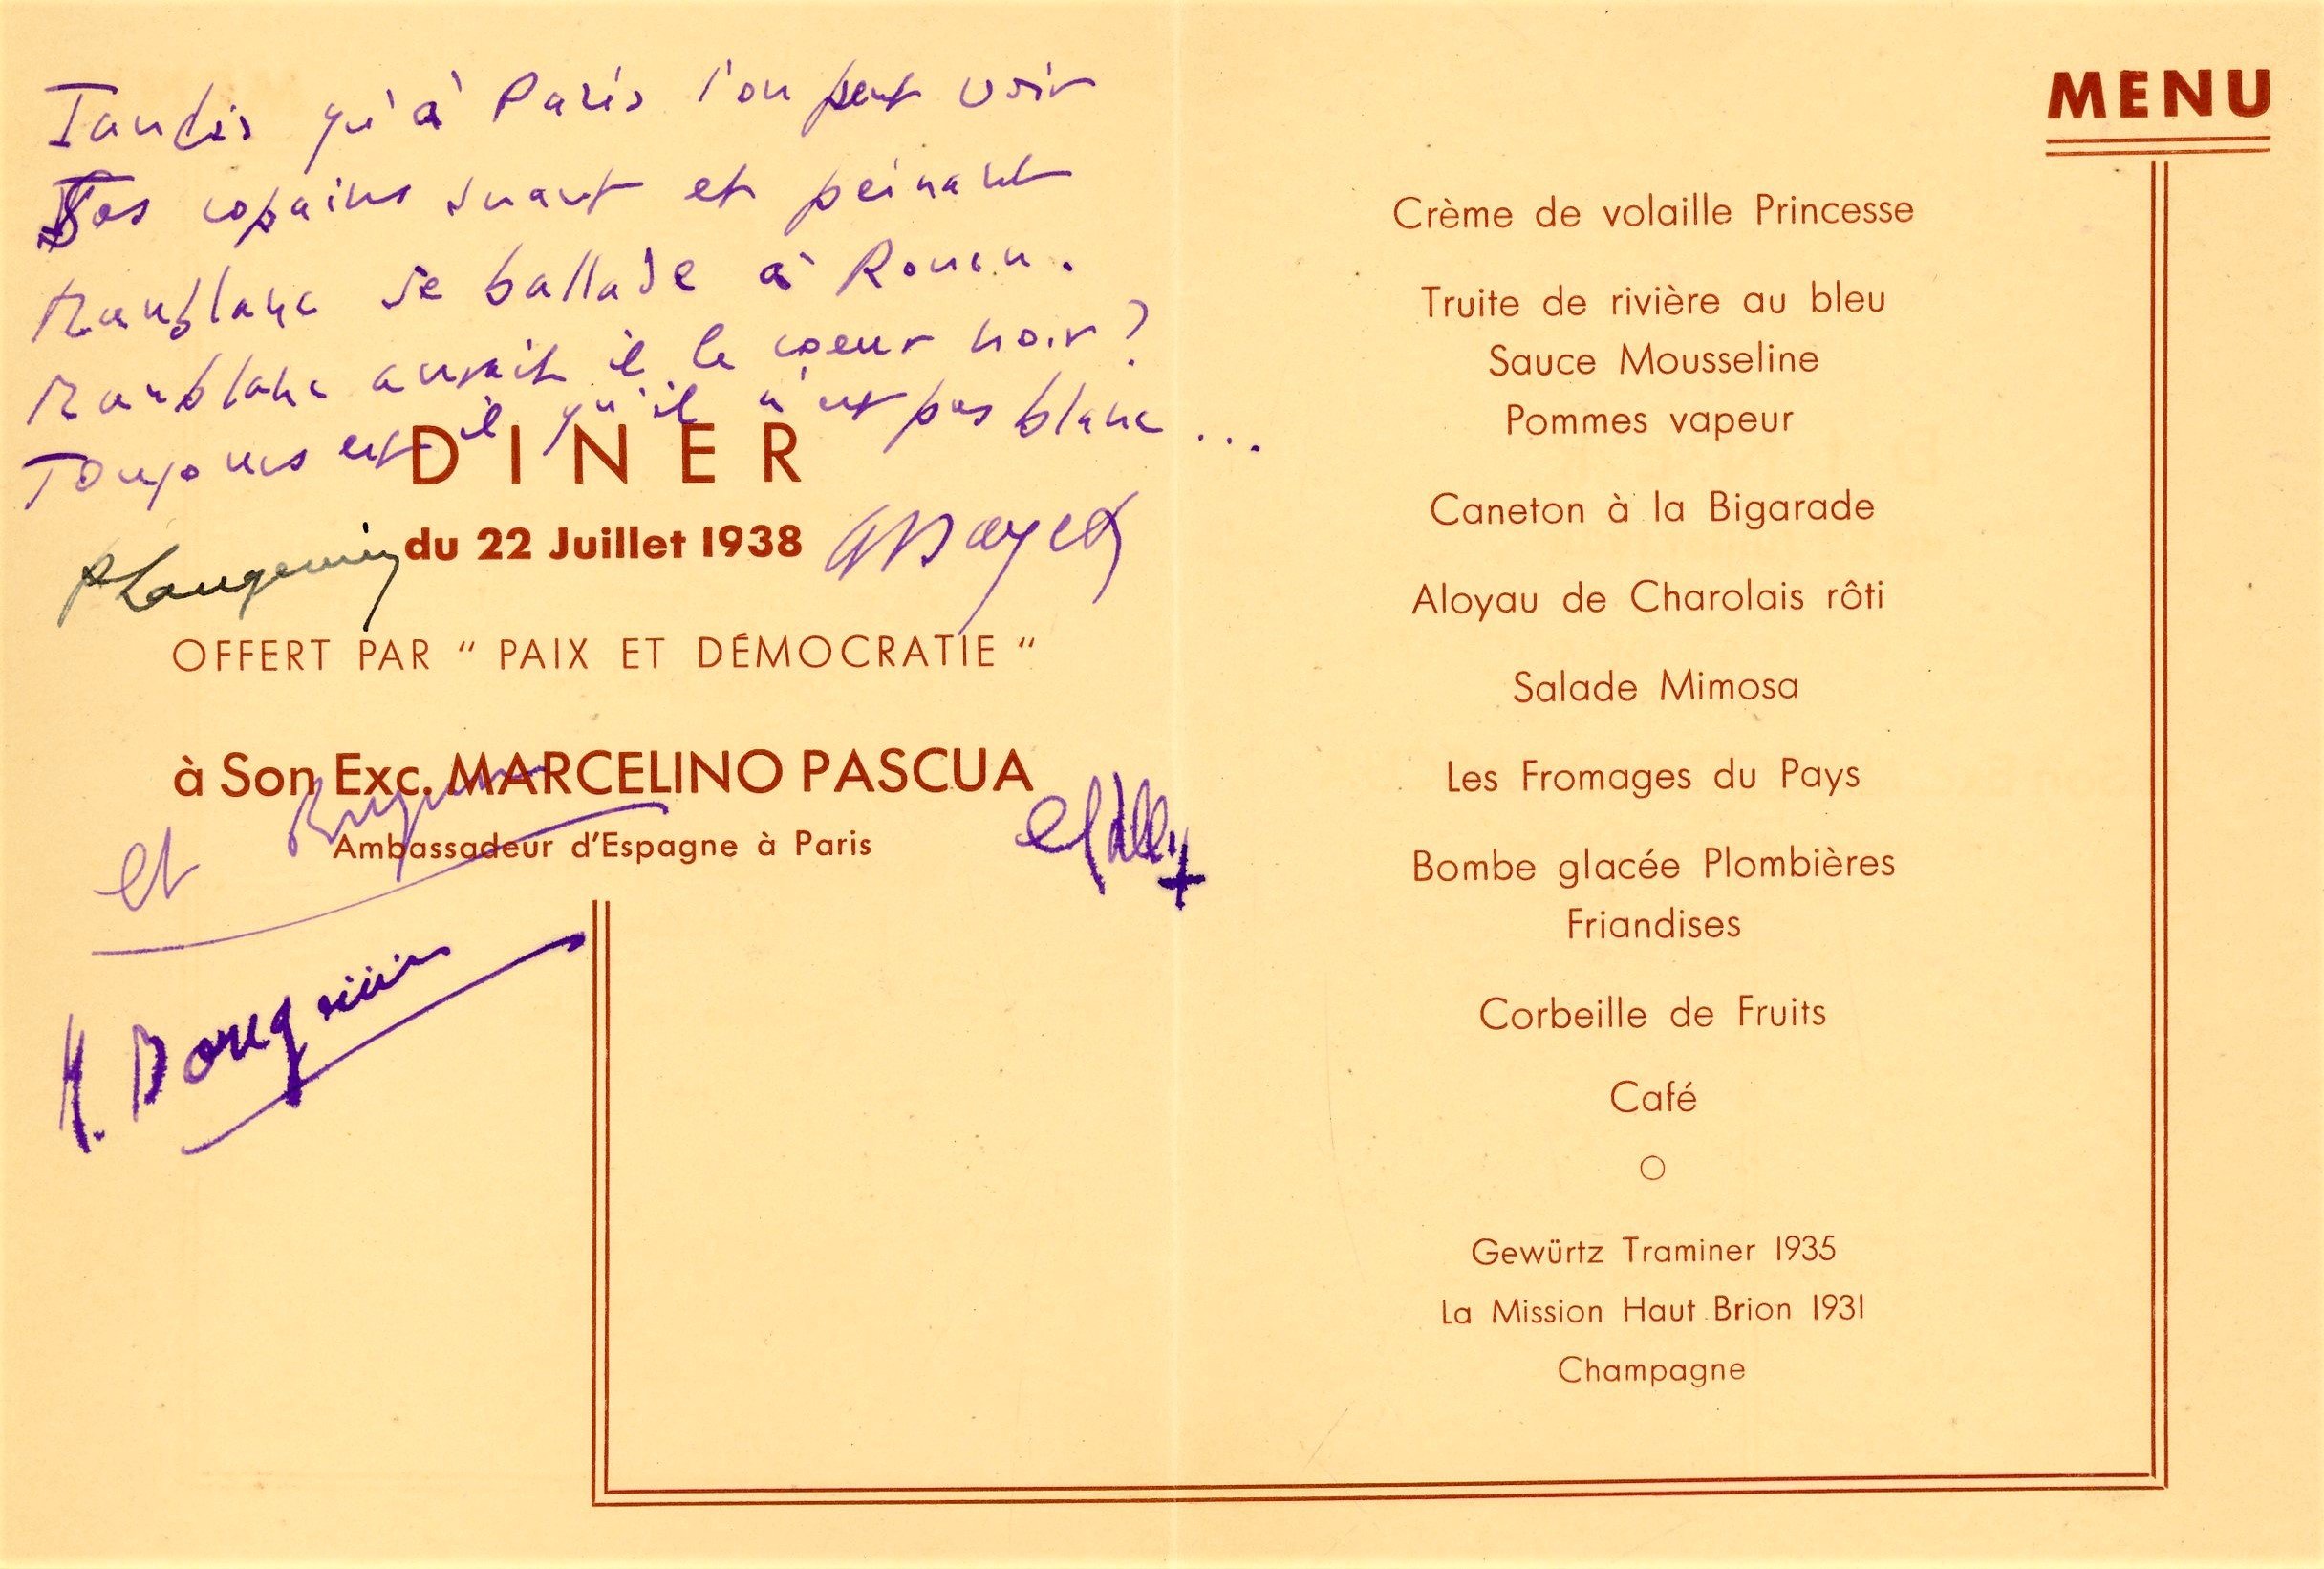 Tandis qu'à Paris l'on peut voir
Ses copains suant et peinant
Manblanc se ballade à Rouen.
Manblanc aurait il le coeur noir ?
Toujours est il qu'il n'est pas blanc ...
DINER
du 22 Juillet 1938
P Langevin
OFFERT PAR " PAIX ET DÉMOCRATIE "
à Son Exc. MARCELINO PASCUA
Ambassadeur d'Espagne à Paris
et
H. Bouquin
MENU
Crème de volaille Princesse
Truite de rivière au bleu
Sauce Mousseline
Pommes vapeur
Caneton à la Bigarade
Aloyau de Charolais rôti
Salade Mimosa
Les Fromages du Pays
Bombe glacée Plombières
Friandises
Corbeille de Fruits
Café
Gewürtz Traminer 1935
La Mission Haut Brion 1931
Champagne